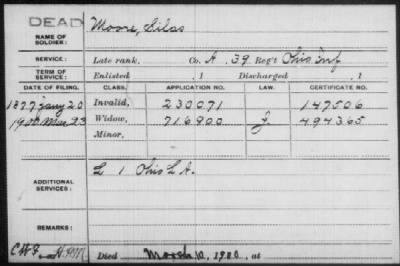 DEAD
NAME OF SOLDIER: Moore, Silas
SERVICE: Late rank, Co. A, 39 Reg't Ohio Inf
TERM OF SERVICE: Enlisted , 1 Discharged , 1
DATE OF FILING. CLASS. APPLICATION NO. LAW. CERTIFICATE NO.
1877 Jany 20 Invalid, 230071 147506
1900 Mar 23 Widow, 716900 J. 494365
Minor,
ADDITIONAL SERVICES: L 1 Ohio L A.
REMARKS:
Died March 10, 1900, at